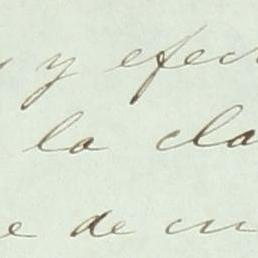 y efec
la cla
e de cu